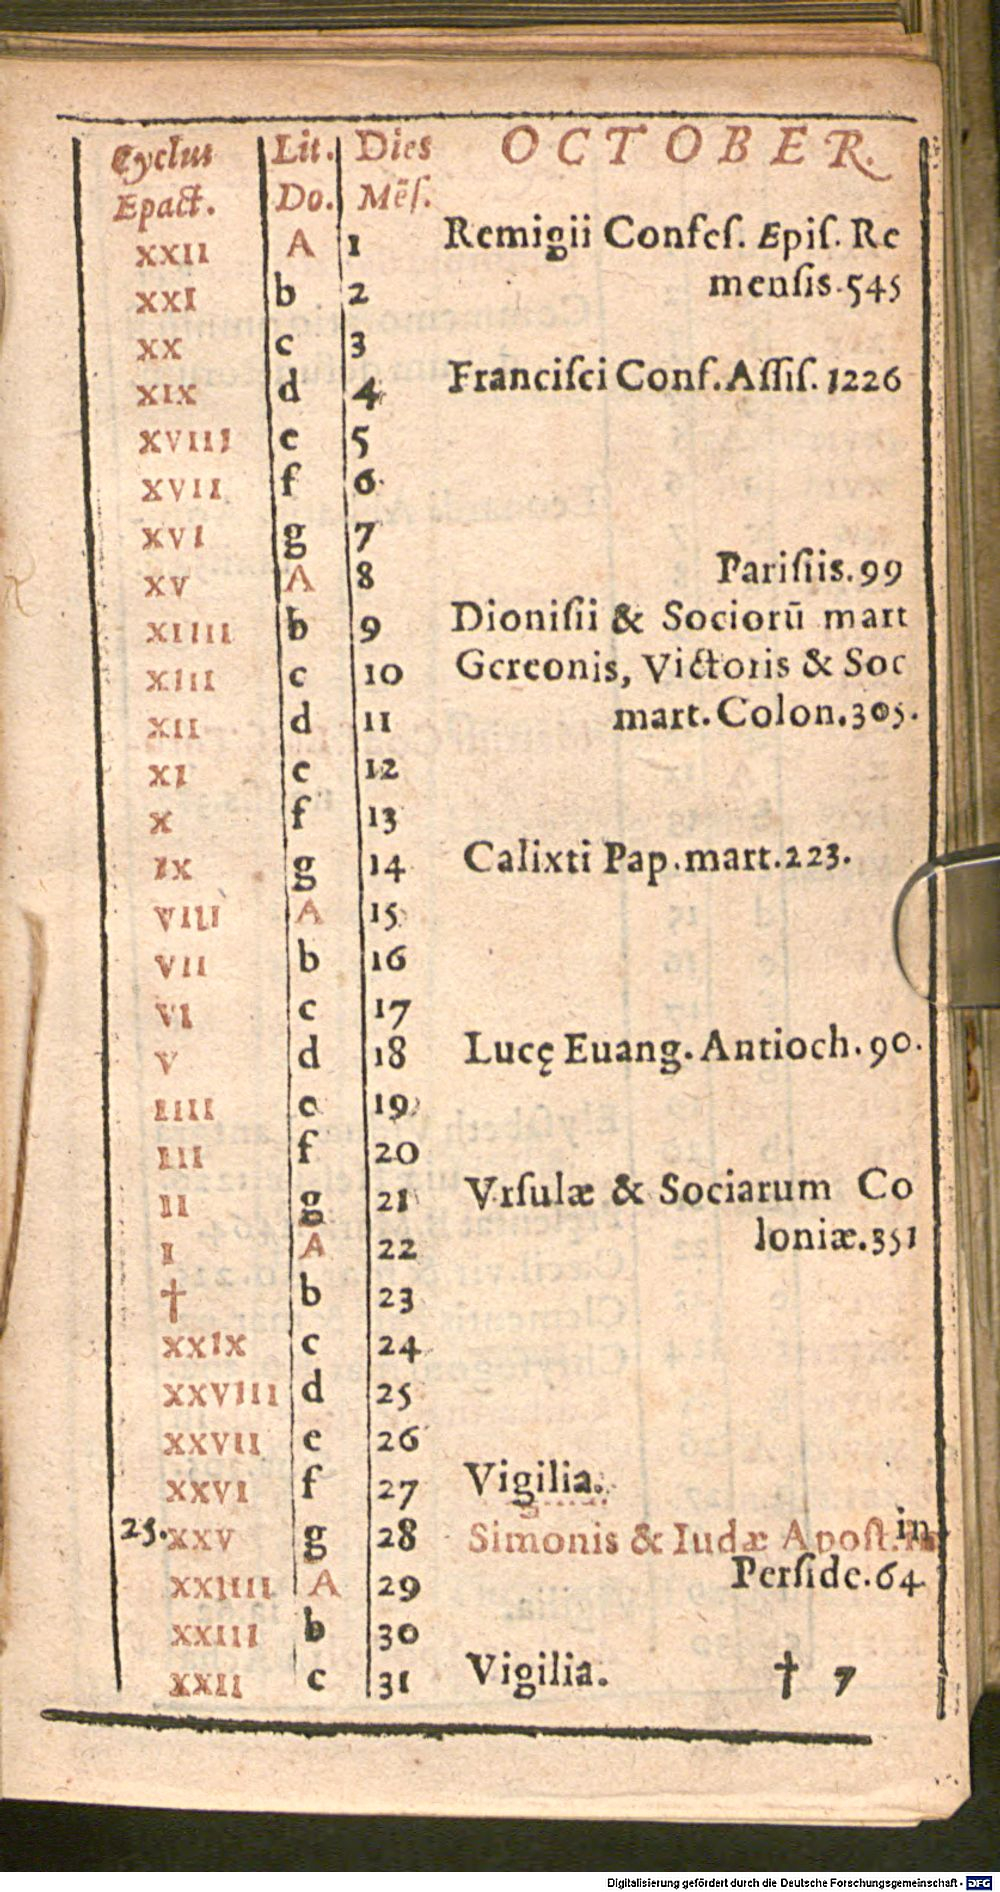 Cyclus Lit. Dies OCTOBER.
Epact. Do. Mēſ.
XXII A 1 Remigii Confeſ. Epiſ. Re
XXI b 2 menſis. 545
XX c 3
XIX d 4 Franciſci Conf. Aſſiſ. 1226
XVIII e 5
XVII f 6
XVI g 7
XV A 8 Pariſiis. 99
XIIII b 9 Dioniſii & Sociorū mart
XIII c 10 Gereonis, Victoris & Soc
XII d 11 mart. Colon. 305.
XI e 12
X f 13
IX g 14 Calixti Pap. mart. 223.
VIII A 15
VII b 16
VI c 17
V d 18 Lucę Euang. Antioch. 90.
IIII e 19
III f 20
II g 21 Vrſulæ & Sociarum Co
I A 22 loniæ. 351
† b 23
XXIX c 24
XXVIII d 25
XXVII e 26
XXVI f 27 Vigilia.
25. XXV g 28 Simonis & Iudæ Apoſt. in
XXIIII A 29 Perſide. 64
XXIII b 30
XXII c 31 Vigilia. † 7
Digitalisierung gefördert durch die Deutsche Forschungsgemeinschaft - DFG